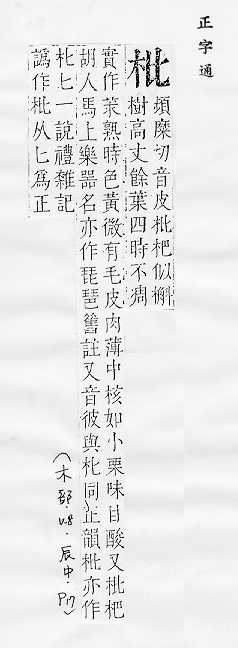 正字通
枇
頻糜切音皮枇杷似槲
樹高丈餘葉四時不凋
實作菜熟時色黃微有毛皮肉薄中核如小栗味甘酸又枇杷
胡人馬上樂器名亦作琵琶舊註又音彼與朼同正韻枇亦作
朼匕一說禮雜記
譌作枇从匕爲正
(木部.v.8.辰中.P17)